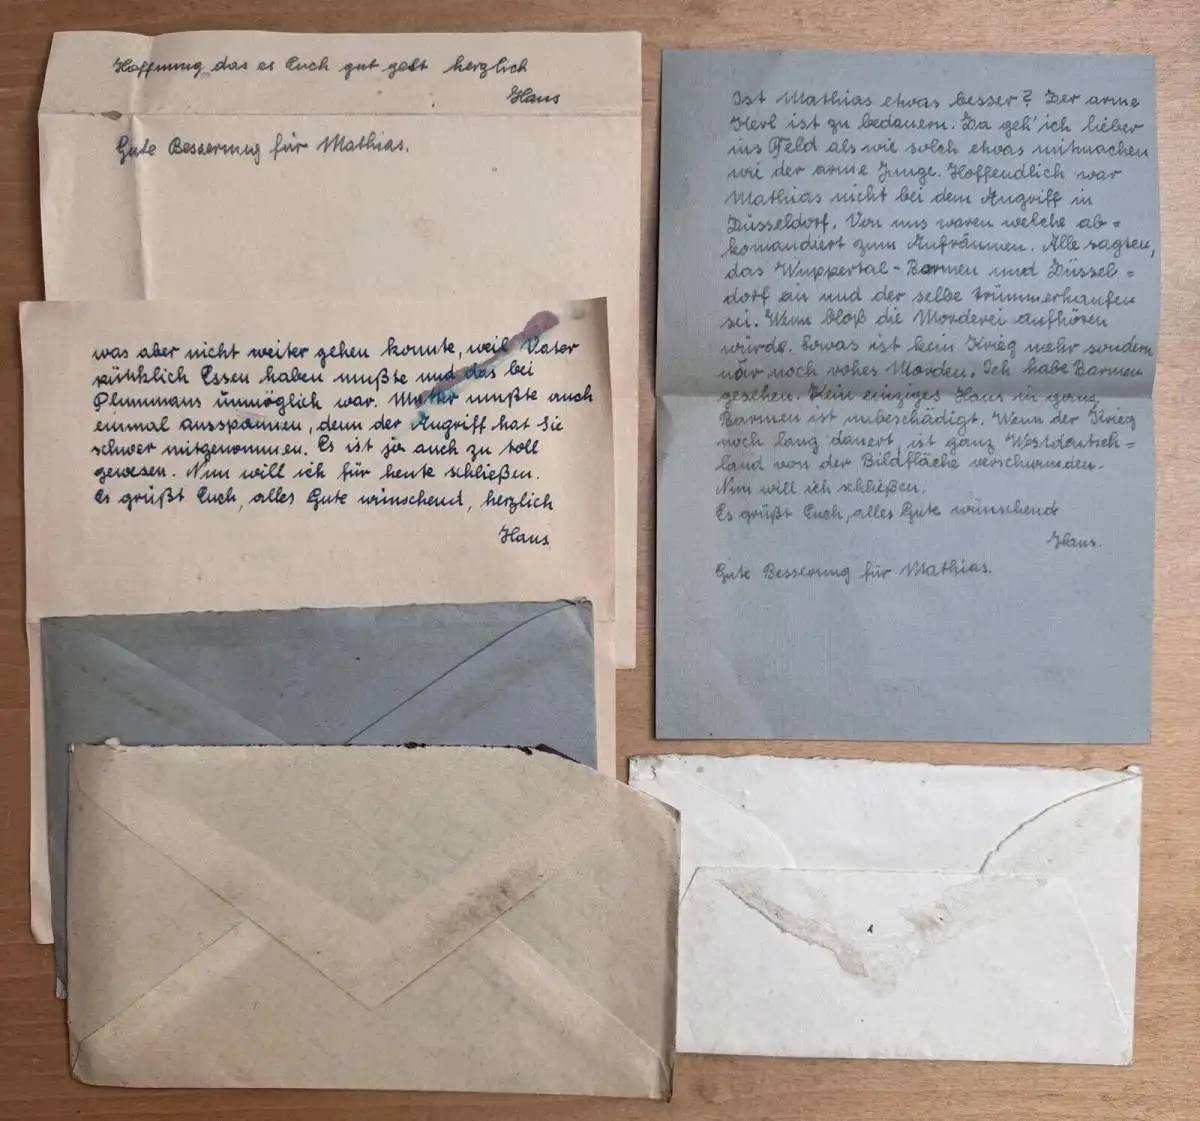 Hoffnung das es Euch gut geht herzlich
Hans
Gute Besserung für Mathias.
was aber nicht weiter gehen konnte, weil Vater
pünktlich Essen haben mußte und das bei
Plummans unmöglich war. Mutter mußte auch
einmal ausspannen, denn der Angriff hat Sie
schwer mitgenommen. Es ist ja auch zu toll
gewesen. Nun will ich für heute schließen.
Es grüßt Euch, alles Gute wünschend, herzlich
Hans
Ist Mathias etwas besser? Der arme
Kerl ist zu bedauern. Da geh' ich lieber
ins Feld als wie solch etwas mitmachen
wie der arme Junge. Hoffendlich war
Mathias nicht bei dem Angriff in
Düsseldorf. Von uns waren welche ab=
komandiert zum Aufräumen. Alle sagten,
das Wuppertal-Barmen und Düssel=
dorf ein und der selbe Trümmerhaufen
sei. Wenn bloß die Morderei aufhören
würde. Sowas ist kein Krieg mehr sondern
nür noch rohes Morden. Ich habe Barmen
gesehen. Kein einziges Haus in ganz
Barmen ist unbeschädigt. Wenn der Krieg
noch lang dauert, ist ganz Westdeutsch=
land von der Bildfläche verschwunden.
Nun will ich schließen.
Es grüßt Euch, alles Gute wünschend
Hans.
Gute Besserung für Mathias.